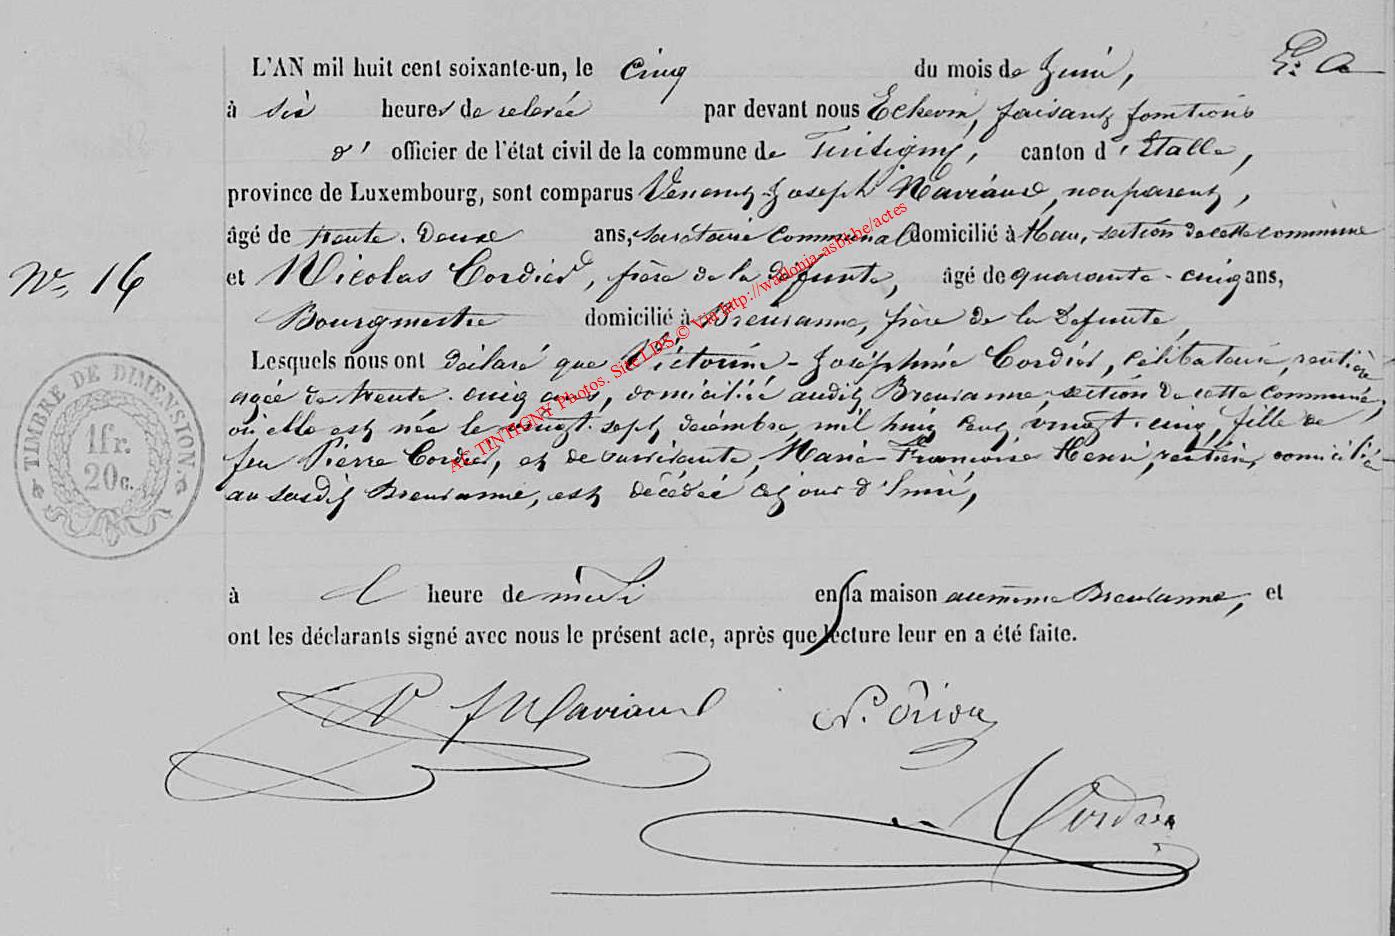 L'AN mil huit cent soixante-un, le cinq du mois de Juin,
à six heures de relevée par devant nous Echevin, faisant fonctions
d' officier de l'état civil de la commune de Tintigny, canton d'Etalle,
province de Luxembourg, sont comparus Joseph Maviaud, non parent,
âgé de trente-deux ans, secrétaire communal domicilié à Han, section de cette commune
N° 16 et Nicolas Cordier, frère de la défunte, âgé de quarante-cinq ans,
Bourgmestre domicilié à Breuvanne, frère de la Défunte,
Lesquels nous ont déclaré que Victorine-Joséphine Cordier, célibataire, rentière
agée de trente-cinq ans, domiciliée audit Breuvanne, section de cette commune,
où elle est née le vingt-sept décembre, mil huit cent vingt-cinq, fille de
feu Pierre Cordier, et de survivante, Marie-Françoise Henri, rentière, domiciliée
au susdit Breuvanne, est décédée ce jour d'hui,
à l' heure de midi en sa maison au même Breuvanne, et
ont les déclarants signé avec nous le présent acte, après que lecture leur en a été faite.
TIMBRE DE DIMENSION.
1 fr.
20 c.
Maviaud
Cordier
AC TINTIGNY Photos. Site LDS © Via http://wallonia-asbl.be/actes